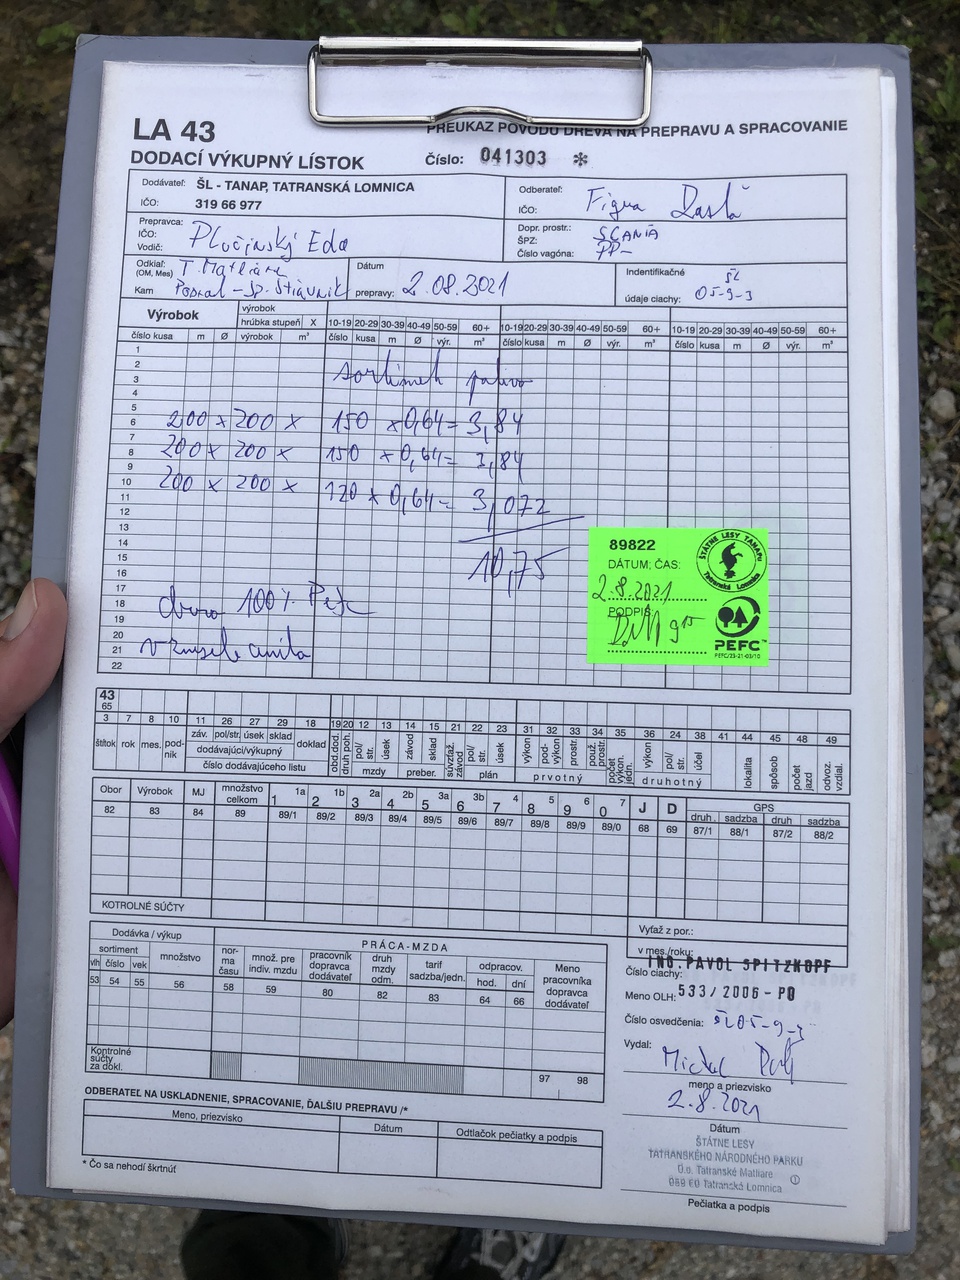 LA 43
PREUKAZ PÔVODU DREVA NA PREPRAVU A SPRACOVANIE
DODACÍ VÝKUPNÝ LÍSTOK
Číslo: 041303 *
Dodávateľ: ŠL - TANAP, TATRANSKÁ LOMNICA
IČO: 319 66 977
Odberateľ: Figura
IČO:
Prepravca:
IČO:
Vodič: Pločinský Edo
Dopr. prostr.: SCANIA
ŠPZ: PP-
Číslo vagóna:
Odkiaľ: T. Matliare
(OM, Mes)
Kam Poprad - Sp. Štiavnik
Dátum
prepravy: 2.08.2021
Indentifikačné ŠL
údaje ciachy: 05-9-3
Výrobok
výrobok
hrúbka stupeň X 10-19 20-29 30-39 40-49 50-59 60+ 10-19 20-29 30-39 40-49 50-59 60+ 10-19 20-29 30-39 40-49 50-59 60+
číslo kusa m Ø výrobok m³ číslo kusa m Ø výr. m³ číslo kusa m Ø výr. m³ číslo kusa m Ø výr. m³
1
2
3 sortiment palivo
4
5
6 200 x 200 x 150 x 0,64 = 3,84
7
8 200 x 200 x 150 x 0,64 = 3,84
9
10 200 x 200 x 120 x 0,64 = 3,072
11
12
13
14
15 10,75
16
17
18 drevo 100% Pefc
19
20
21 v zmysle
22
89822
DÁTUM, ČAS:
2.8.2021
PODPIS:
9 15
ŠTÁTNE LESY TANAPu
Tatranská Lomnica
PEFC™
PEFC/23-21-03/10
43
65
3 7 8 10 11 26 27 29 18 19 20 12 13 14 15 21 22 23 31 32 33 34 35 36 24 38 41 44 45 48 49
štítok rok mes. podník záv. pol/str. úsek sklad doklad obd.dod. druh poh. pol/str. úsek závod sklad súvzťaž. závod pol/str. úsek výkon pod-výkon prostr. použ. prostr. počet výkon. jedn. výkon pol/str. účel lokalita spôsob počet jazd odvoz. vzdial.
dodávajúci/výkupný
číslo dodávajúceho listu mzdy preber. plán prvotný druhotný
Obor Výrobok MJ množstvo celkom 1 1a 2 1b 3 2a 4 2b 5 3a 6 3b 7 4 8 5 9 6 0 7 J D GPS
druh. sadzba druh sadzba
82 83 84 89 89/1 89/2 89/3 89/4 89/5 89/6 89/7 89/8 89/9 89/0 68 69 87/1 88/1 87/2 88/2
KOTROLNÉ SÚČTY
Dodávka / výkup
PRÁCA-MZDA
sortiment množstvo nor-ma času množ. pre indiv. mzdu pracovník dopravca dodávateľ druh mzdy odm. tarif sadzba/jedn. odpracov. Meno pracovníka dopravca dodávateľ
vlh číslo vek hod. dní
53 54 55 56 58 59 80 82 83 64 66
Kontrolné súčty za dokl.
97 98
Vyťaž z por.:
v mes./roku:
ING. PAVOL SPITZKOPF
Číslo ciachy:
Meno OLH: 533/2006 - PO
Číslo osvedčenia: ŠL05-9-3
Vydal: Michal
meno a priezvisko
2.8.2021
Dátum
ŠTÁTNE LESY
TATRANSKÉHO NÁRODNÉHO PARKU
O.o. Tatranské Matliare
059 60 Tatranská Lomnica
Pečiatka a podpis
ODBERATEĽ NA USKLADNENIE, SPRACOVANIE, ĎALŠIU PREPRAVU /*
Meno, priezvisko Dátum Odtlačok pečiatky a podpis
* Čo sa nehodí škrtnúť